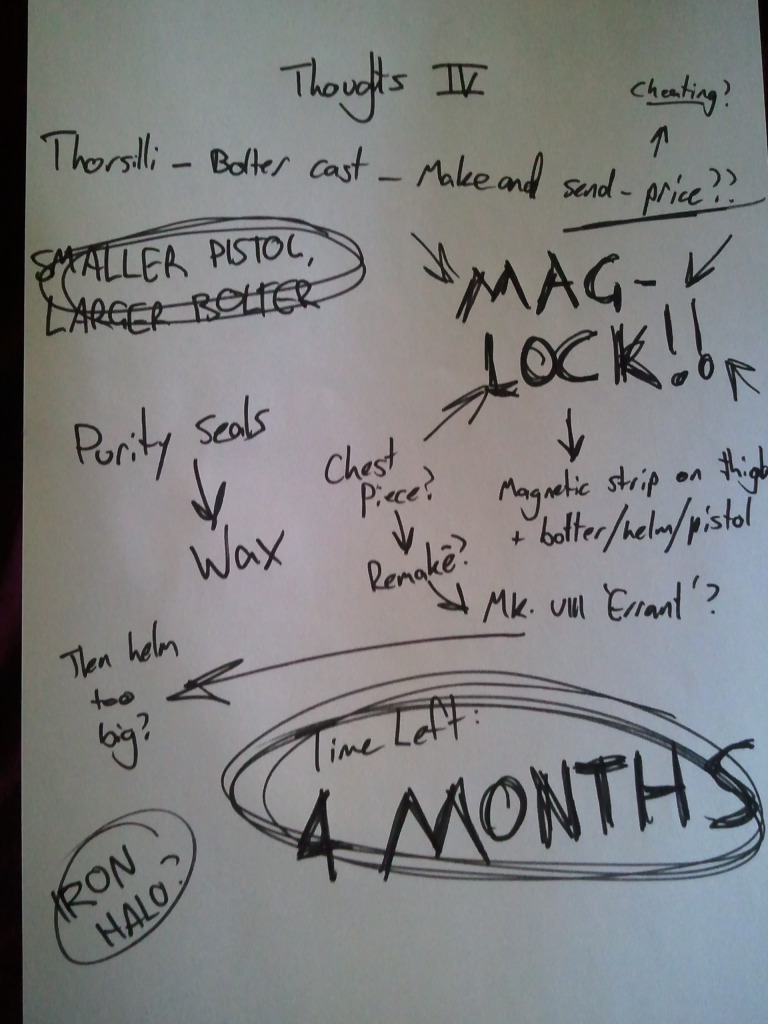 Thoughts IV
Cheating?
Thorsilli - Bolter cast - Make and send - price??
SMALLER PISTOL,
LARGER BOLTER
MAG-
LOCK!!
Purity seals
Wax
Chest
Piece?
Remake?
Magnetic strip on thigh
+ bolter/helm/pistol
Mk. VIII 'Errant'?
Then helm
too
big?
Time Left:
4 MONTHS
IRON
HALO?